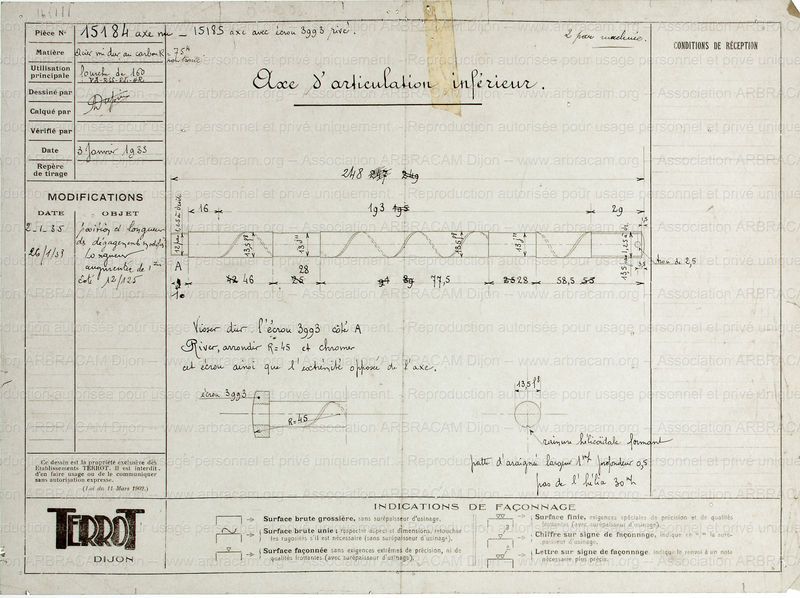 Pièce No 15184 axe nu _ 15185 axe avec écrou 3993 rivé.
2 par machine.
CONDITIONS DE RÉCEPTION
Matière Acier mi dur au carbone
Utilisation principale fourche de 160
Dessiné par
Calqué par
Vérifié par
Date 3 Janvier 1935
Repère de tirage
Axe d'articulation inférieur.
MODIFICATIONS
DATE OBJET
2-1-35 position et longueur
de dégagements modifiés
26/1/39 Longueur
augmentée de 1
côté 12/125
248 247 249
16 193 195 29
13,5 13 13,5 13
A
28
46 25 94 89 77,5 28 58,5 53
trou de 2,5
Visser dur l'écrou 3993 côté A
River, arrondir R=45 et chromer
cet écrou ainsi que l'extrémité opposée de l'axe.
écrou 3993
R=45
13,5
rainure hélicoïdale formant
patte d'araignée largeur 1 profondeur 0,5
pas de l'hélice 30
Ce dessin est la propriété exclusive des
Etablissements TERROT. Il est interdit
d'en faire usage ou de le communiquer
sans autorisation expresse.
(Loi du 11 Mars 1902.)
TERROT
DIJON
INDICATIONS DE FAÇONNAGE
Surface brute grossière, sans surépaisseur d'usinage.
Surface brute unie: respecter aspect et dimensions, retoucher
les rugosités s'il est nécessaire (sans surépaisseur d'usinage).
Surface façonnée sans exigences extrêmes de précision, ni de
qualités frottantes (avec surépaisseur d'usinage).
Surface finie, exigences spéciales de précision et de qualités
frottantes (avec surépaisseur d'usinage).
Chiffre sur signe de façonnage, indique en m/m la surépaisseur d'usinage.
Lettre sur signe de façonnage, indique le renvoi à une note
nécessaire plus précise.
www.arbracam.org – Association ARBRACAM Dijon – Reproduction autorisée pour usage personnel et privé uniquement.